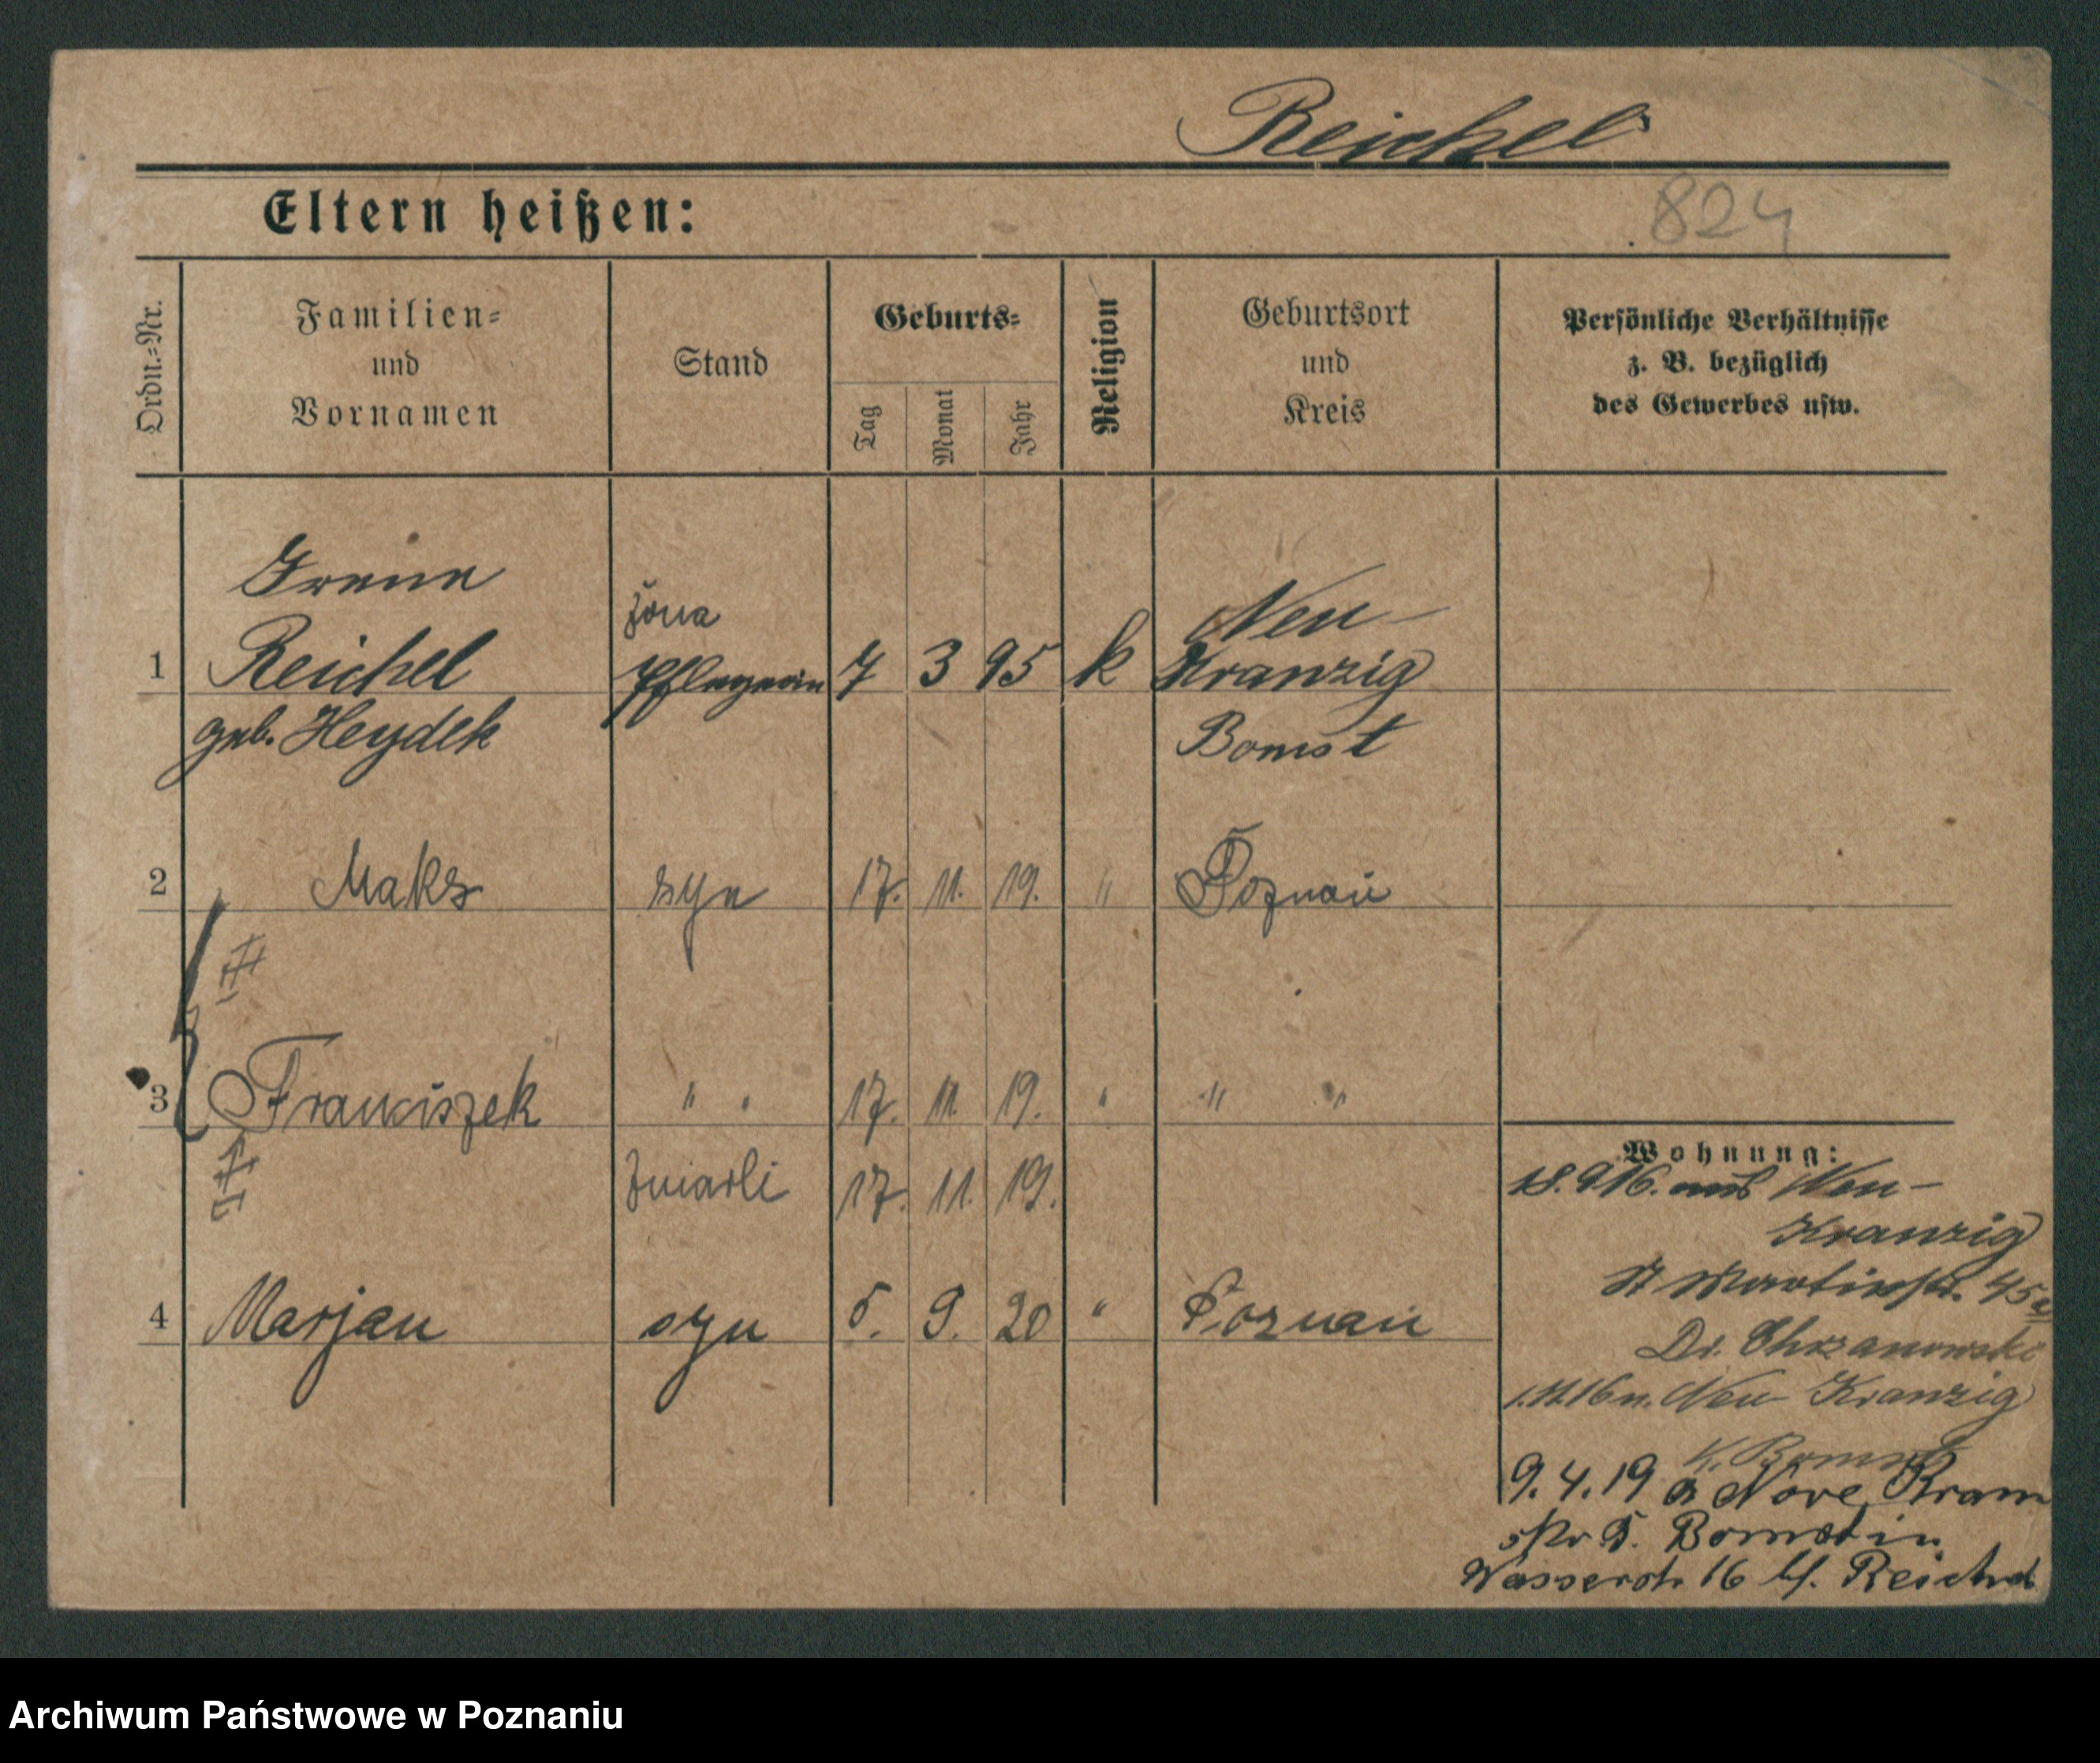 Reichel
Eltern heißen:
824
Ordn.=Nr.
Familien=
und
Vornamen
Stand
Geburts=
Tag
Monat
Jahr
Religion
Geburtsort
und
Kreis
Persönliche Verhältnisse
z. B. bezüglich
des Gewerbes usw.
1
Irene
Reichel
geb. Heydek
żona
Pflegerin
7 3 95 k
Neu
Kranzig
Bomst
2 Maks syn 17. 11. 19. " Poznań
3 Franciszek " " 17. 11. 19. " " "
Zmarli 17. 11. 19.
4 Marjan syn 5. 9. 20 " Poznań
Wohnung:
18.9.16. aus Neu-
Kranzig
St Martinstr. 45a
Dr. Chrzanowski
1.11.16 n. Neu Kranzig
K. Bomst
9.4.19 a Nove Kram
sko P. Bomst in
Wasserstr 16 bf. Reichel
Archiwum Państwowe w Poznaniu